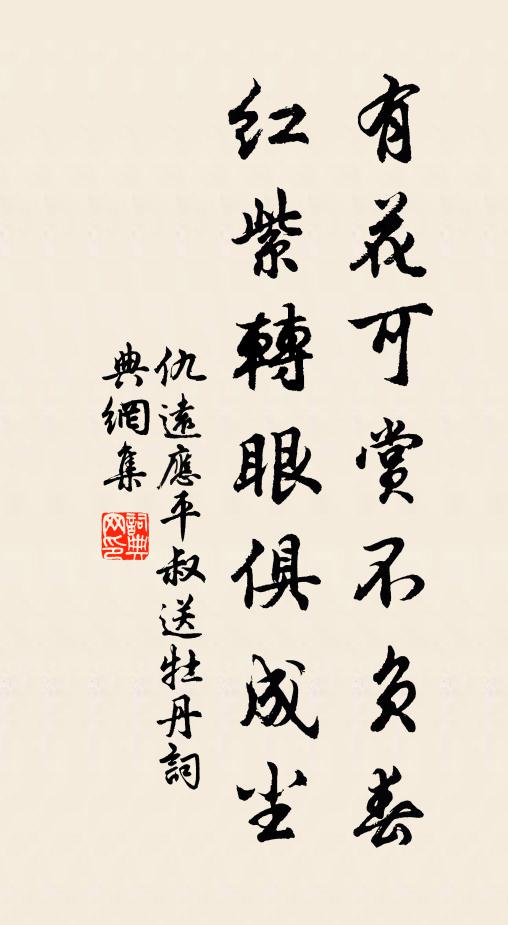 有花可賞不負春
紅紫轉眼俱成尘
仇遠應平叔送牡丹詞
典網集
詞典网印